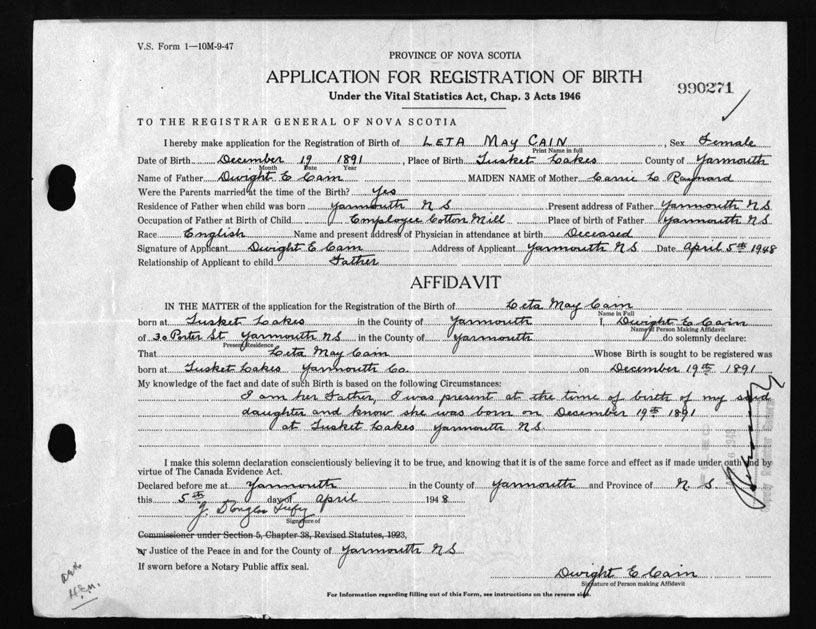 V.S. Form 1—10M-9-47
PROVINCE OF NOVA SCOTIA
APPLICATION FOR REGISTRATION OF BIRTH
990271
Under the Vital Statistics Act, Chap. 3 Acts 1946
TO THE REGISTRAR GENERAL OF NOVA SCOTIA
I hereby make application for the Registration of Birth of LETA MAY CAIN, Sex Female
Print Name in full
Date of Birth December 19 1891, Place of Birth Tusket Lakes County of Yarmouth
Month Date Year
Name of Father Dwight E Cain MAIDEN NAME of Mother Carrie L Raynard
Were the Parents married at the time of the Birth? Yes
Residence of Father when child was born Yarmouth N S Present address of Father Yarmouth N S
Occupation of Father at Birth of Child Employee Cotton Mill Place of birth of Father Yarmouth N S
Race English Name and present address of Physician in attendance at birth Deceased
Signature of Applicant Dwight E Cain Address of Applicant Yarmouth N S Date April 5th 1948
Relationship of Applicant to child Father
AFFIDAVIT
IN THE MATTER of the application for the Registration of the Birth of Leta May Cain
Name in Full
born at Tusket Lakes in the County of Yarmouth I, Dwight E Cain
Name of Person Making Affidavit
of 30 Porter St Yarmouth N S in the County of Yarmouth do solemnly declare:
Present Residence
That Leta May Cain Whose Birth is sought to be registered was
born at Tusket Lakes Yarmouth Co. on December 19th 1891
My knowledge of the fact and date of such Birth is based on the following Circumstances:
I am her Father, I was present at the time of birth of my said
daughter and know she was born on December 19th 1891
at Tusket Lakes Yarmouth N S
I make this solemn declaration conscientiously believing it to be true, and knowing that it is of the same force and effect as if made under oath and by
virtue of The Canada Evidence Act.
Declared before me at Yarmouth in the County of Yarmouth and Province of N. S.
this 5th day of April 1948
J. Douglas
Signature of
Commissioner under Section 5, Chapter 38, Revised Statutes, 1923,
or Justice of the Peace in and for the County of Yarmouth N S
If sworn before a Notary Public affix seal.
Dwight E Cain
Signature of Person making Affidavit
For Information regarding filling out of this Form, see instructions on the reverse side